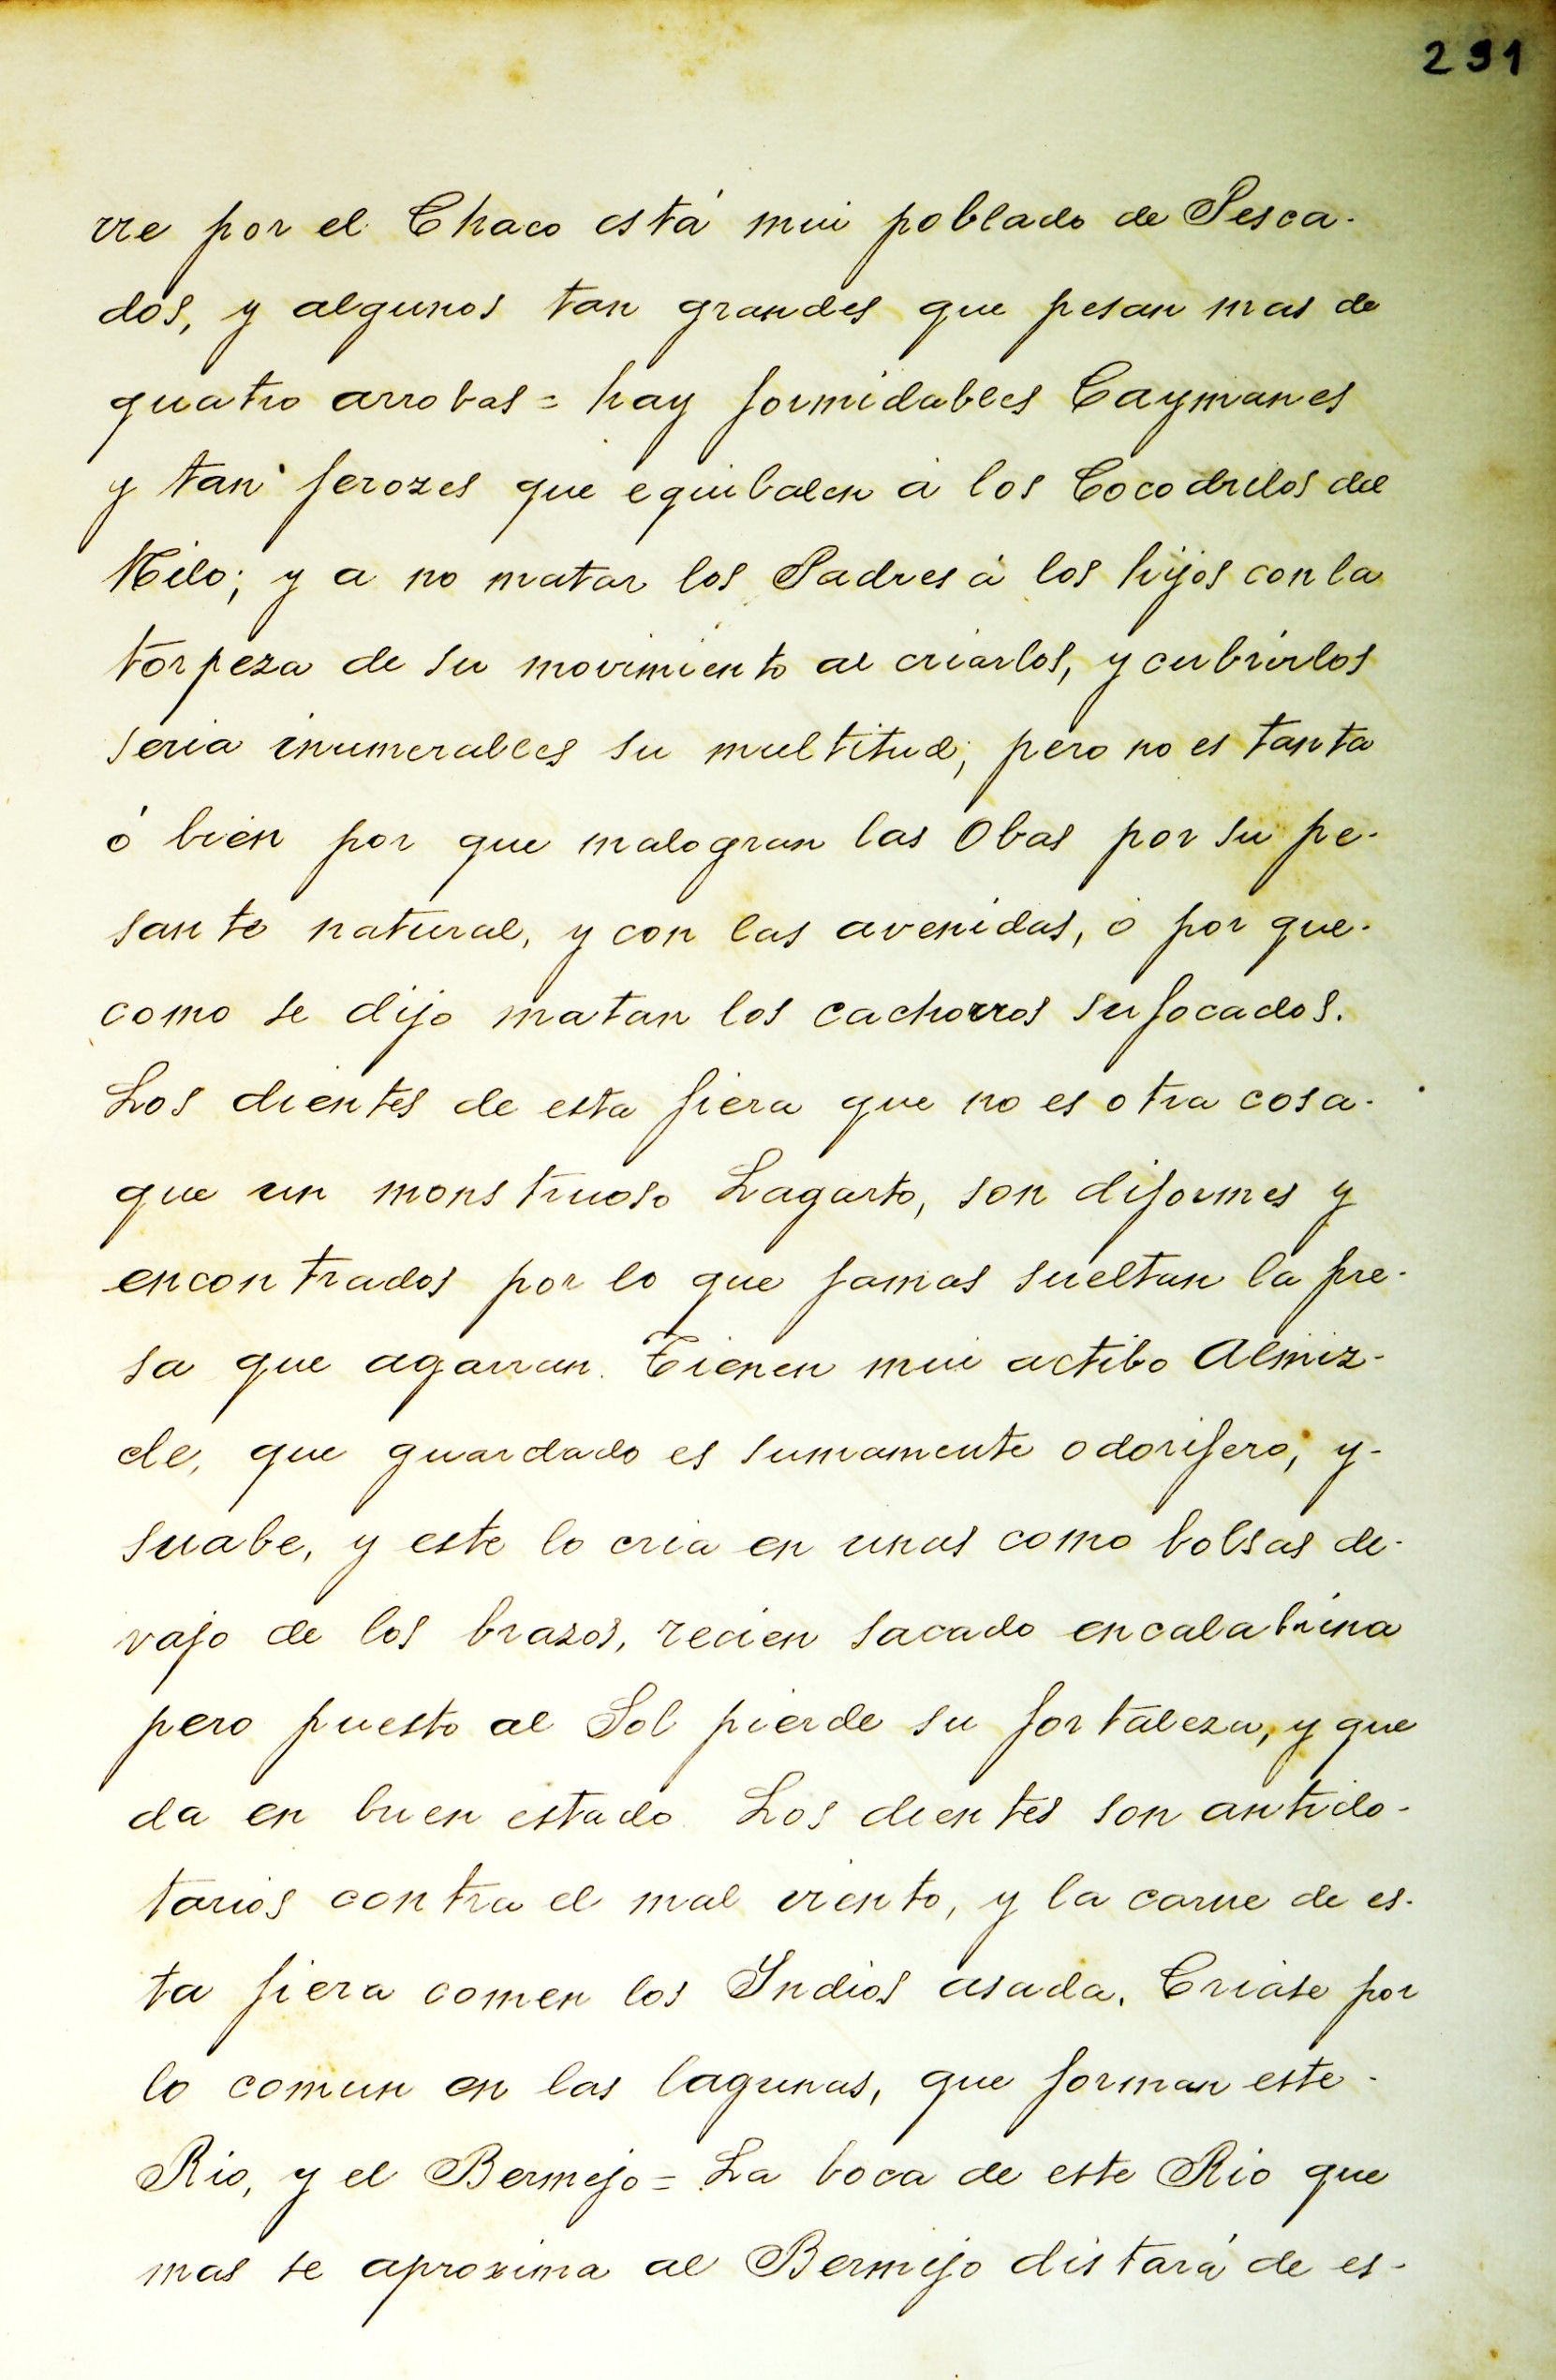 291
rre por el Chaco está mui poblado de Pesca-
dos, y algunos tan grandes que pesan mas de
quatro arrobas = hay formidables Caymanes
y tan ferozes que equibalen á los Cocodrilos del
Nilo; y a no matar los Padres á los hijos con la
torpeza de su movimiento al criarlos, y cubrirlos
seria inumerables su multitud; pero no es tanta
ó bien por que malogran las Obas por su pe-
sante natural, y con las avenidas, ó por que-
como se dijo matan los cachorros sufocados.
Los dientes de esta fiera que no es otra cosa-
que un monstruoso Lagarto, son diformes y
encontrados por lo que jamas sueltan la pre-
sa que agarran. Tienen mui actibo Almiz-
cle, que guardado es sumamente odorifero, y-
suabe, y este lo cria en unas como bolsas de-
vajo de los brazos, recien sacado encalabrina
pero puesto al Sol pierde su fortaleza, y que
da en buen estado. Los dientes son antido-
tarios contra el mal viento, y la carne de es-
ta fiera comen los Indios asada. Criase por
lo comun en las lagunas, que forman este-
Rio, y el Bermejo = La boca de este Rio que
mas se aproxima al Bermejo distará de es-